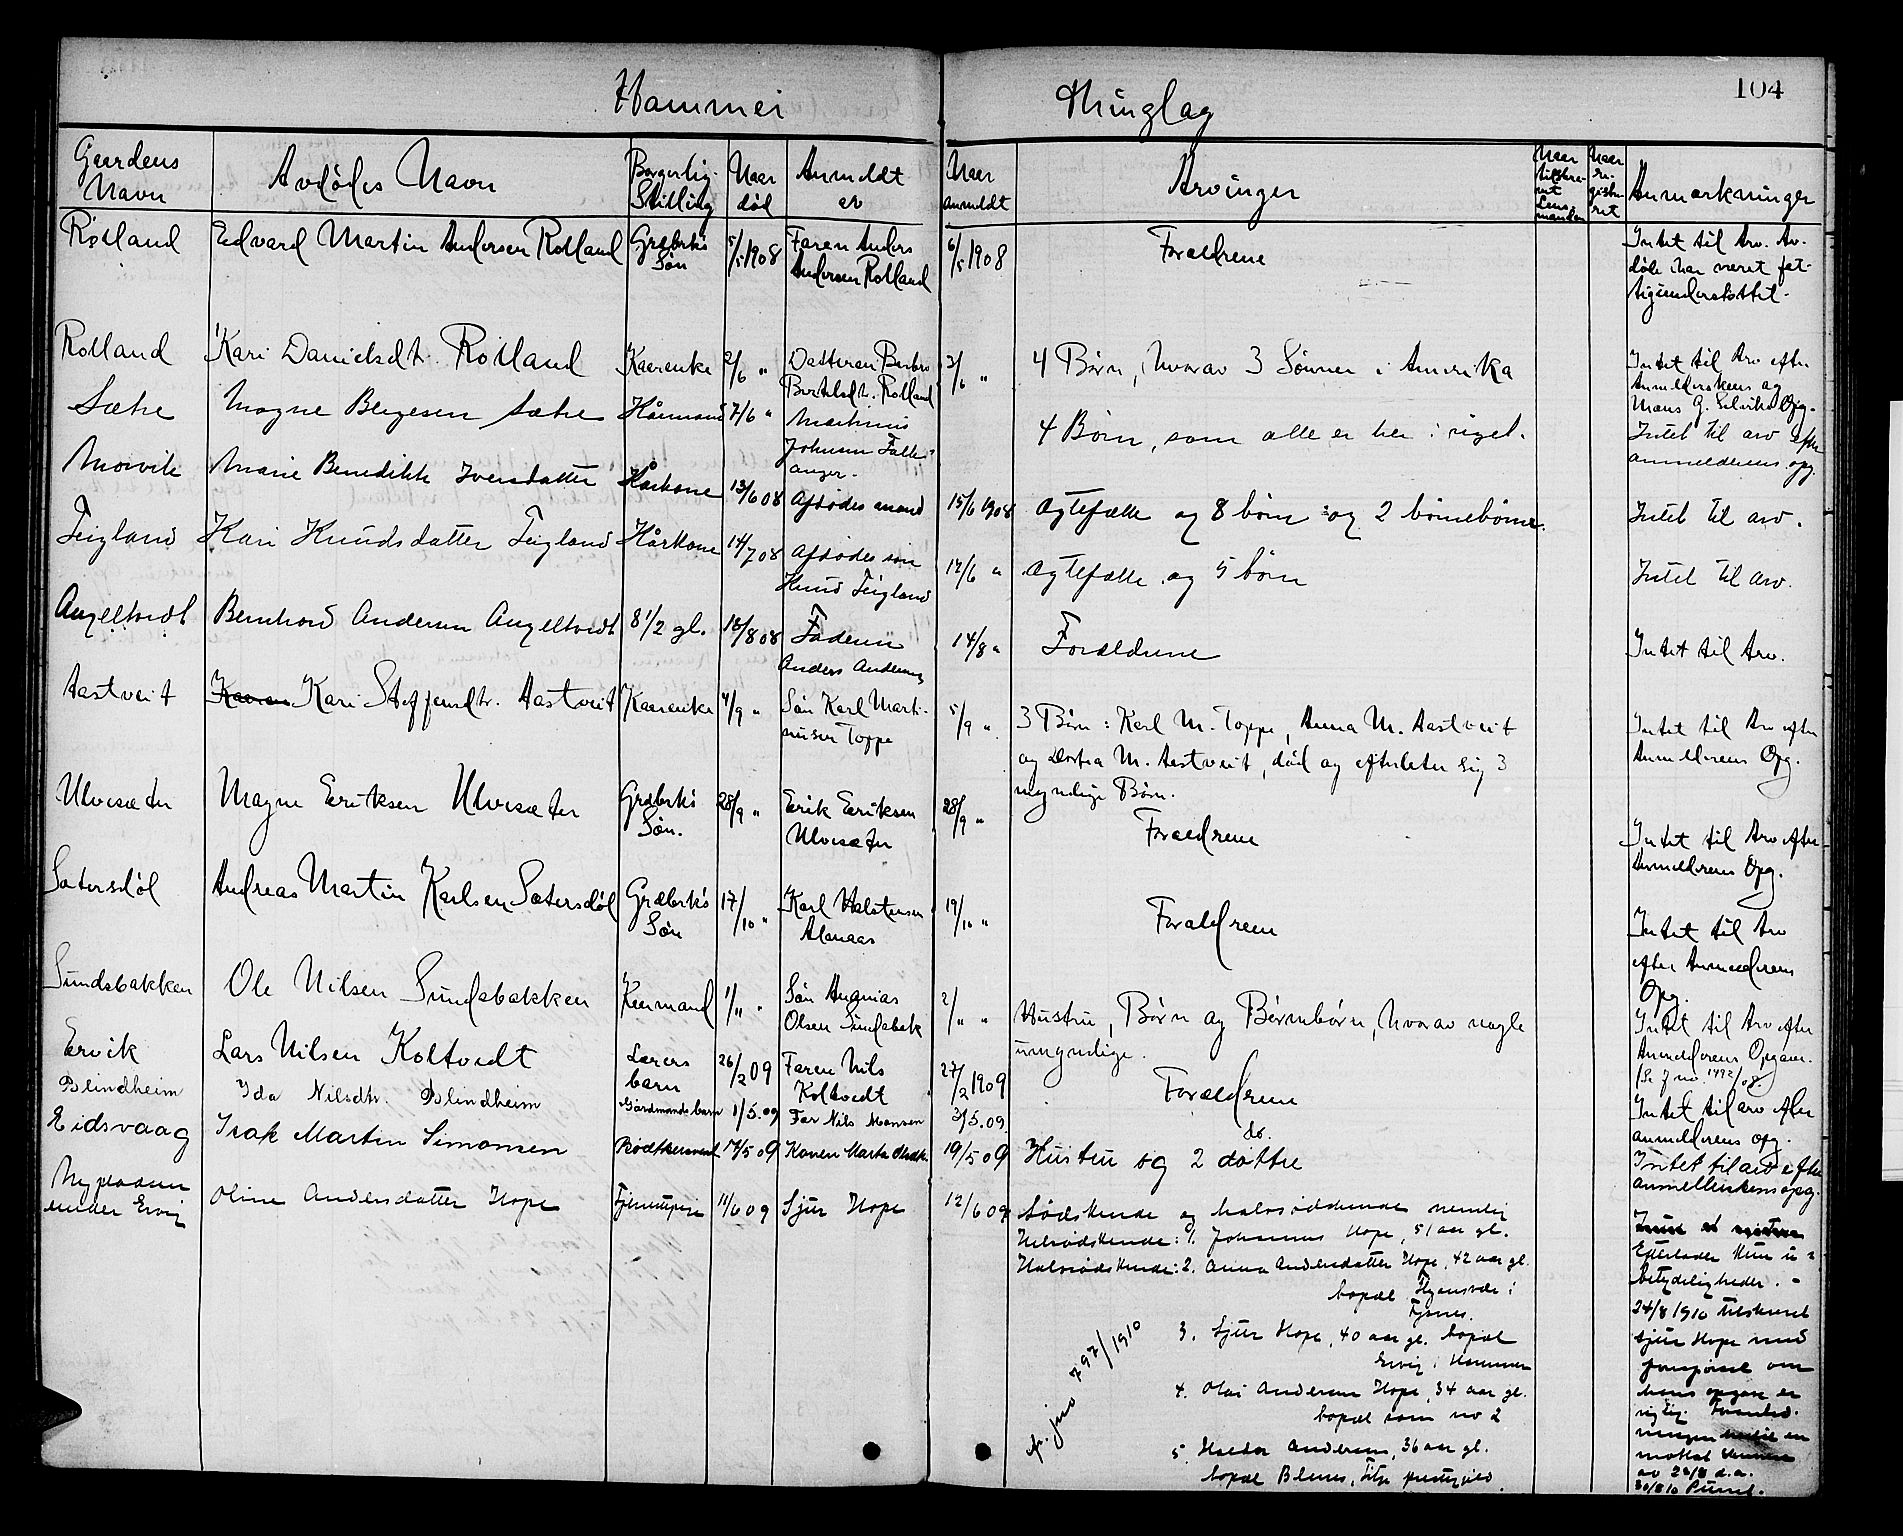 Hammer Thinglag 104
Gaardens Navn | Avdødes Navn | Borgerlig Stilling | Naar død | Anmeldt av | Naar anmeldt | Arvinger | Naar tilskrevet Lensmanden | Naar registreret | Anmærkninger
Rolland | Edvard Martin Andersen Rolland | Grdbrks Søn | 5/5 1908 | Faren Anders Andersen Rolland | 6/5 1908 | Forældrene | Intet til Arv. Avdøde har været fattigunderstøttet.
Rolland | Kari Danielsdt. Rolland | Kaarenke | 2/6 " | Datteren Berbro Bertelsdt. Rolland | 3/6 " | 4 Børn, hvorav 3 Sønner i Amerika | Intet til Arv efter Anmelderskens og Mons G. Selviks Opg.
Sætre | Mogne Bergesen Sætre | Kårmand | 7/6 " | Martinus Johnsen Salhusanger. | 4 Børn, som alle er her i riget. | Intet til arv efter anmelderens opg.
Morvik | Marie Benedikte Iversdatter | Kårkone | 13/6 08 | Afdødes mand | 15/6 1908 | Ægtefælle og 8 børn og 2 børnebørn. | Intet til arv.
Teigland | Kari Knudsdatter Teigland | Kårkone | 14/7 08 | Afdødes søn Knud Teigland | 17/6 " | Ægtefælle og 5 børn | Intet til arv.
Angeltvedt | Bernhard Andersen Angeltvedt | 8 1/2 gl. | 13/8 08 | Faderen Anders Andersen | 14/8 " | Forældrene | Intet til Arv.
Aastveit | Kari Steffensdtr. Aastveit | Kaarenke | 4/9 " | Søn Karl Martinusen Toppe | 5/9 " | 3 Børn: Karl M. Toppe, Anna M. Aastveit
og Dortea M. Aastveit, død og efterlater sig 3
myndige Børn. | Intet til Arv efter Anmelderens Opg.
Ulvesæter | Magne Eriksen Ulvesæter | Grdbrks Søn. | 28/9 " | Erik Eriksen Ulvesæter | 28/9 " | Forældrene | Intet til Arv efter Anmelderens Opg.
Sætersdøl | Andreas Martin Karlsen Sætersdøl | Grdbrks Søn | 17/10 " | Karl Halstensen Alanaas | 19/10 " | Forældrene | Intet til Arv efter Anmelderens Opg.
Sundsbakken | Ole Nilsen Sundsbakken | Kaarmand | 1/11 " | Søn Ananias Olsen Sundsbak | 2/11 " | Hustru, Børn og Børnebørn, hvorav nogle
umyndige. | Intet til Arv efter Anmelderens Opgave. (Se J no. 1492/08)
Ervik | Lars Nilsen Koltvedt | Lærers barn | 26/2 09 | Faren Nils Koltvedt | 27/2 1909 | Forældrene | Intet til arv efter anmelderens opg.
Blindheim | Ida Nilsdtr. Blindheim | Gårdmandsbarn | 1/5.09 | Far Nils Monsen | 3/5.09. | do.
Eidsvaag | Isak Martin Simonsen | Bødtkersvend | 17/5 09 | Konen Marta Olsdtr. | 19/5 09 | Hustru og 2 døttre | Intet til arv efter anmelderskens opg.
Nyplassen under Ervig | Oline Andersdatter Hope | Tjenestepige | 11/6 09 | Sjur Hope | 12/6 09 | Sødskende og halvsødskende nemlig
Helsødskende: 1. Johannes Hope, 51 aar gl.
Halvsødskende: 2. Anna Andersdatter Hope, 42 aar gl.
bopæl
3. Sjur Hope, 40 aar gl. bopæl
Ervig i Hammer
4. Olai Andersen Hope, 34 aar gl.
bopæl som no 2
5. Haldor Andersen, 36 aar gl.
bopæl
cfr. jno 797/1910
Efterlader kun ubetydeligheder. -
24/8 1910 tilskrevet
Sjur Hope med
forespørsel om
hans opgave er
rigtig.
av 24/8 d.a.
30/8 10